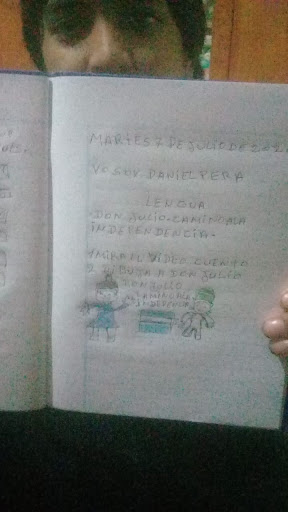 MARTES 7 DE JULIO DE 2020
YO SOY DANIEL PERA
LENGUA
DON JULIO CAMINO A LA
INDEPENDENCIA
1 MIRA EL VIDEO CUENTO
2 DIBUJA A DON JULIO
DON JULIO
CAMINO A LA